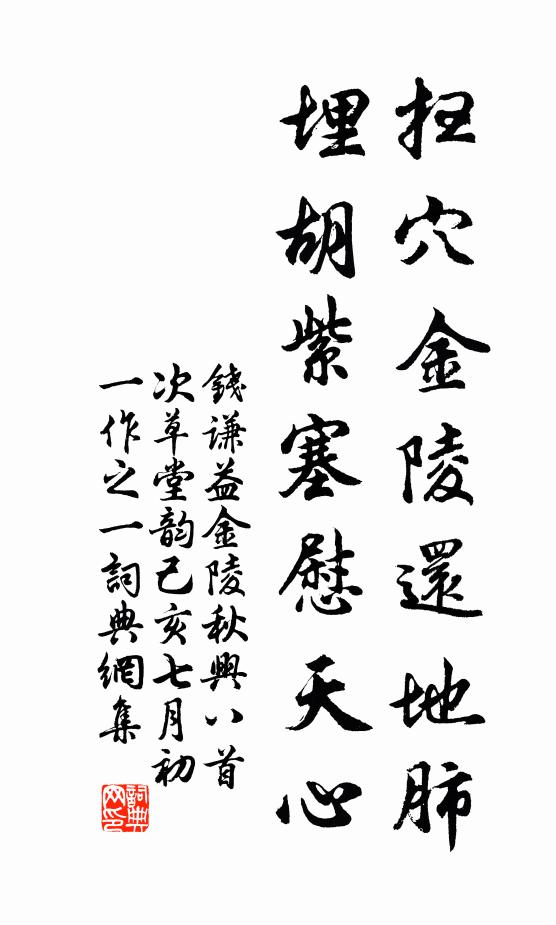 扫穴金陵還地肺
埋胡紫塞慰天心
錢謙益金陵秋興八首
次草堂韵己亥七月初
一作之一詞典網集
詞典网印